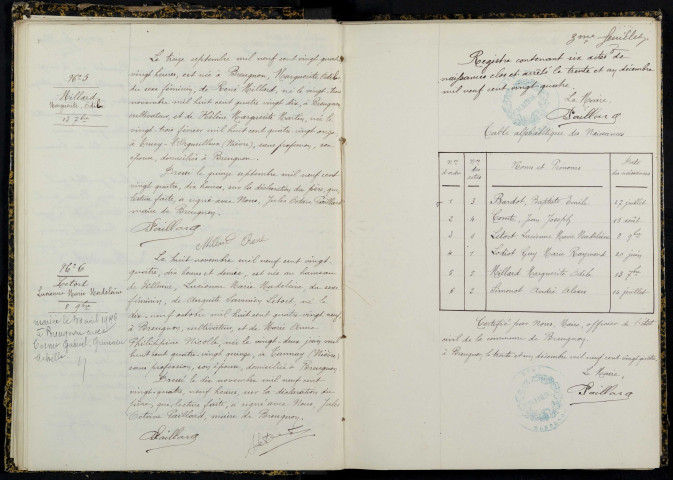 N° 5
Millard
Marguerite Odile
13 7bre
Le treize septembre mil neuf cent vingt quatre
vingt heures, est née à Breugnon, Marguerite Odile
du sexe féminin, de René Millard, né le vingt trois
novembre mil huit cent quatre vingt dix, à Breugnon
cultivateur, et de Hélène Marguerite Martin, née le
vingt trois février mil huit cent quatre vingt onze
à (Nièvre), sans profession, son
épouse, domiciliés à Breugnon.
Dressé le quinze septembre mil neuf cent
vingt quatre, dix heures, sur la déclaration du père, qui,
lecture faite, a signé avec Nous, Jules Paillard
maire de Breugnon.
Paillard
Millard René
N° 6
Letort
Lucienne Marie Madeleine
8 9bre
mariée le
à Breugnon avec
Le huit novembre mil neuf cent vingt
quatre, dix heures et demie, est née au hameau
de Villaine, Lucienne Marie Madeleine, du sexe
féminin, de Auguste Letort, né le
dix neuf octobre mil huit cent quatre vingt neuf
à Breugnon, cultivateur, et de Marie Anne
Philippine Nicolle, née le vingt deux juin mil
huit cent quatre vingt quinze, à Tannay (Nièvre)
sans profession, son épouse, domiciliés à Breugnon
Dressé le dix novembre mil neuf cent
vingt-quatre, neuf heures, sur la déclaration du
père, qui, lecture faite, a signé avec Nous, Jules
Paillard, maire de Breugnon.
Paillard
Letort
3me feuillet
Registre contenant six actes de
naissances clos et arrêté le trente et un décembre
mil neuf cent vingt quatre.
Le Maire,
Paillard
Table alphabétique des Naissances
Nos d'ordre Nos des actes Noms et Prénoms Dates des naissances
1 3 Bardot, Baptiste Emile 27 juillet
2 4 Comte, Jean Joseph 18 août
3 6 Letort Lucienne Marie Madeleine 8 9bre
4 1 Guy Marie Raymond 20 juin
5 5 Millard Marguerite Odile 13 7bre
6 2 Simonot André 14 juillet
Certifié par Nous, Maire, officier de l'état
civil de la commune de Breugnon,
à Breugnon, le trente et un décembre mil neuf cent vingt quatre
Le Maire,
Paillard